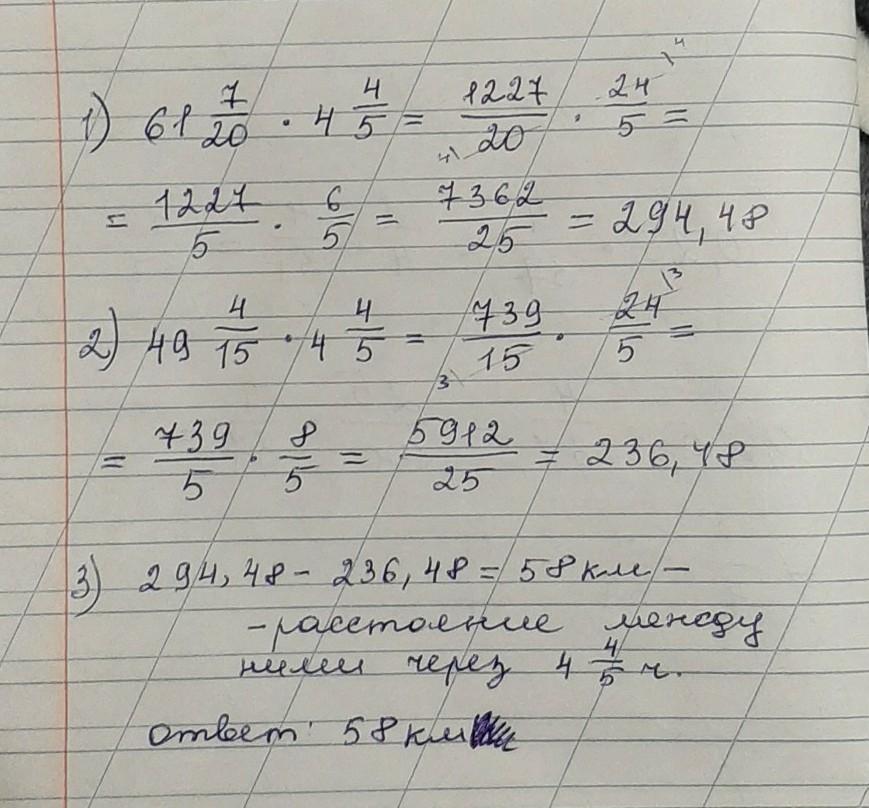 1) 61 7/20 · 4 4/5 = 1227/20 \4 · 24/5 \4 =
= 1227/5 · 6/5 = 7362/25 = 294,48
2) 49 4/15 · 4 4/5 = 739/15 3\ · 24/5 \3 =
= 739/5 · 8/5 = 5912/25 = 236,48
3) 294,48 - 236,48 = 58 км -
- расстояние между
ними через 4 4/5 ч.
ответ: 58 км